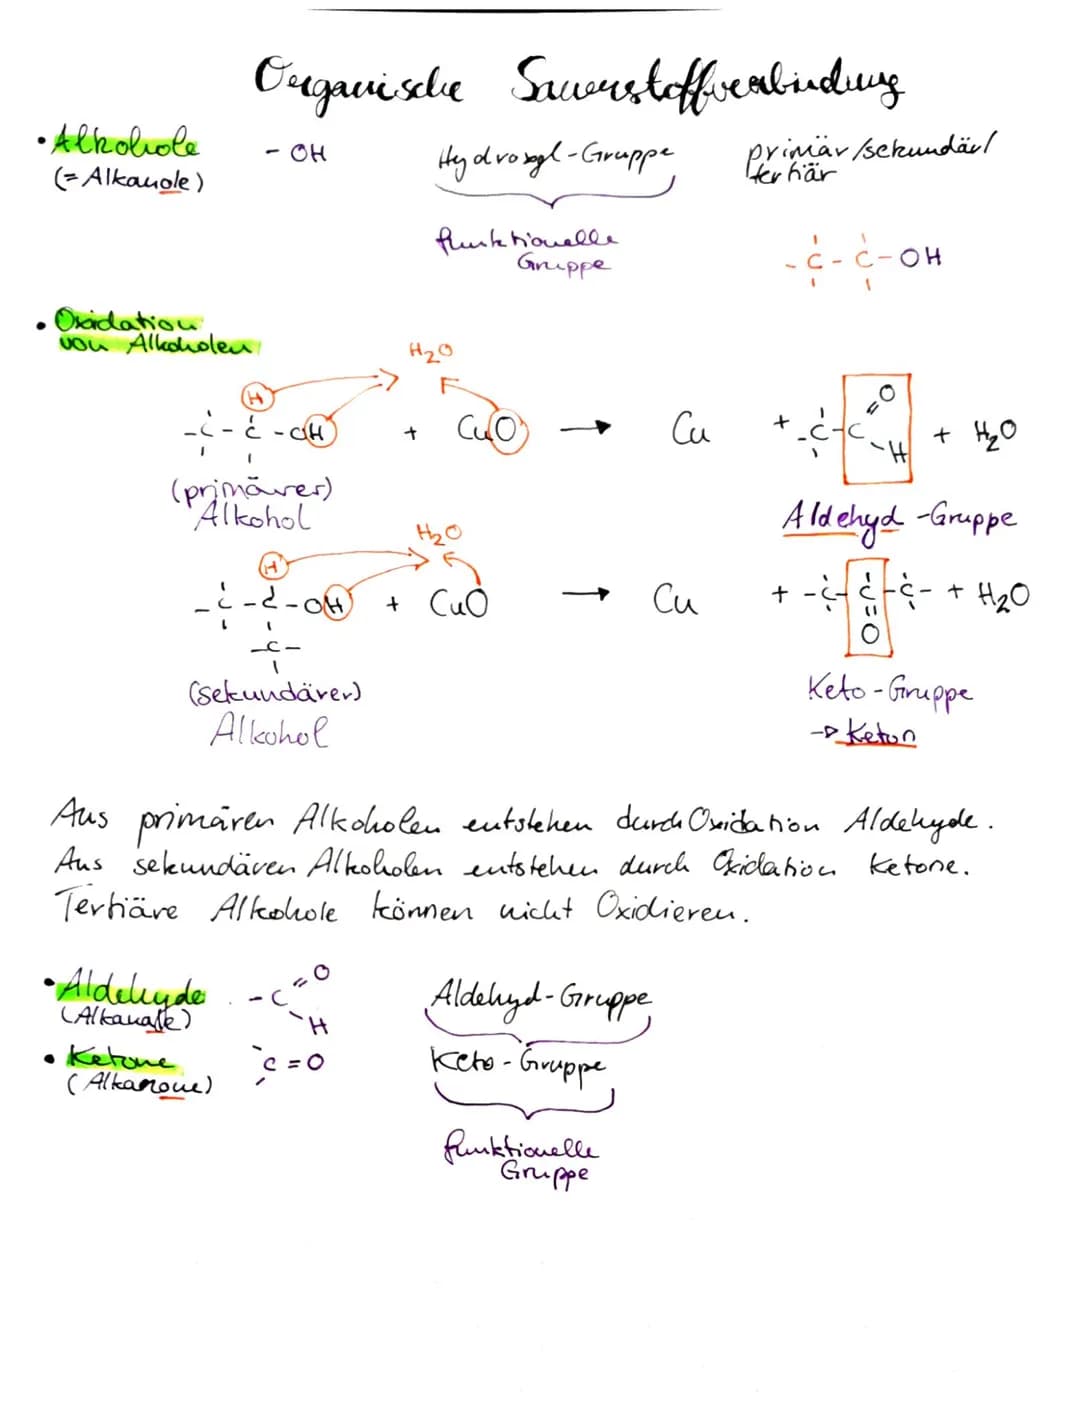 Organische Sauerstoffverbindung
• Alkohole - OH Hydroxyl-Gruppe primär/sekundär/
(= Alkanole) tertiär
funktionelle
Gruppe
- C - C - OH
• Oxidation
von Alkoholen
H₂O
H
- C - C - OH + CuO → Cu + - C - C = O H + H₂O
(primärer)
Alkohol
Aldehyd - Gruppe
H₂O
H
- C - C - OH + CuO → Cu + - C - C - C - + H₂O
- C - O
(sekundärer)
Alkohol
Keto - Gruppe
→ Keton
Aus primären Alkoholen entstehen durch Oxidation Aldehyde.
Aus sekundären Alkoholen entstehen durch Oxidation Ketone.
Tertiäre Alkohole können nicht Oxidieren.
• Aldehyde - C = O H Aldehyd-Gruppe
(Alkanale)
• Ketone C = O Keto - Gruppe
(Alkanone)
funktionelle
Gruppe